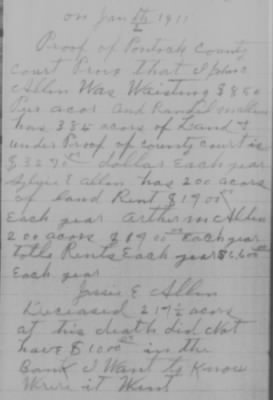 on Jan 1911
Proof of Pontock County
Court Prove that I
Allin Was Waisting $850
Per acor and Randel
has 385 acors of Land &
under Proof of county court is
dollar Each year
E allin has 200 acors
of land Rent $1900
Each year Arther McAllin
200 acors $1900 Each year
totle Rents Each year
Each year
Jessie E Allin
Deceased 217½ acors
at his death did Not
have $1000 in the
Bank I Want to Know
Were it Went